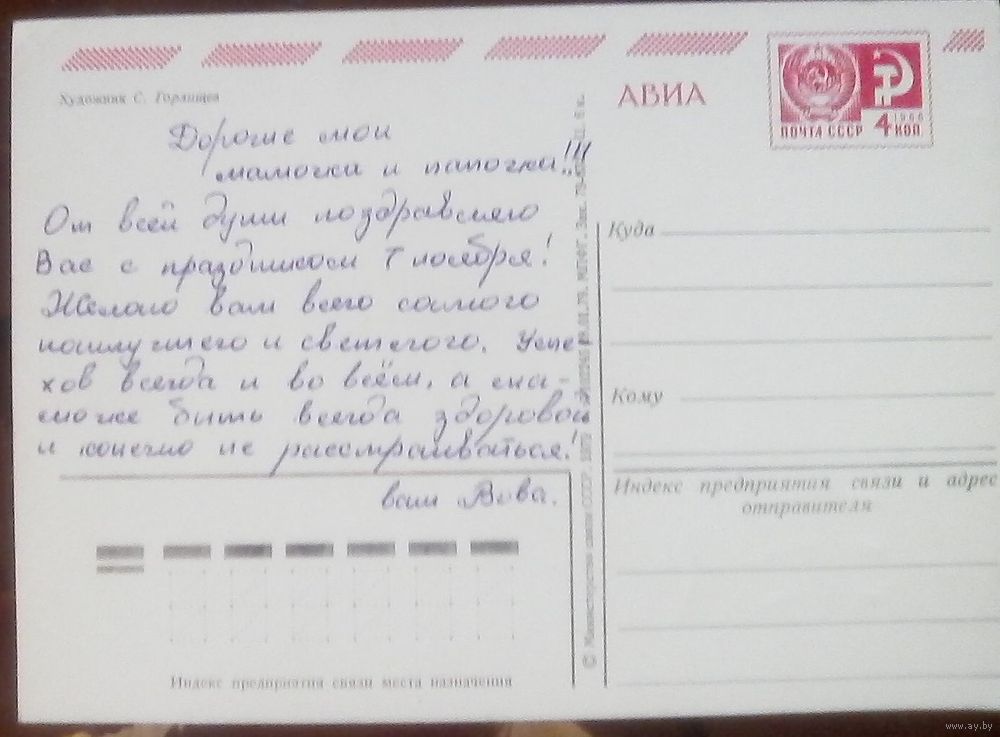 Художник С. Горлищев
АВИА
ПОЧТА СССР 4 КОП. 1966
Дорогие мои
мамочка и папочка!!!
От всей души поздравляю
Вас с праздником 7 ноября!
Желаю вам всего самого
наилучшего и светлого. Успе-
хов всегда и во всём, а ма-
мочке быть всегда здоровой
и конечно не расстраиваться!
ваш Вова.
Куда
Кому
Индекс предприятия связи и адрес
отправителя
Индекс предприятия связи места назначения
© Министерство связи СССР. 1979 МПФГ. Зак. Ц. 6 к.
www.ay.by